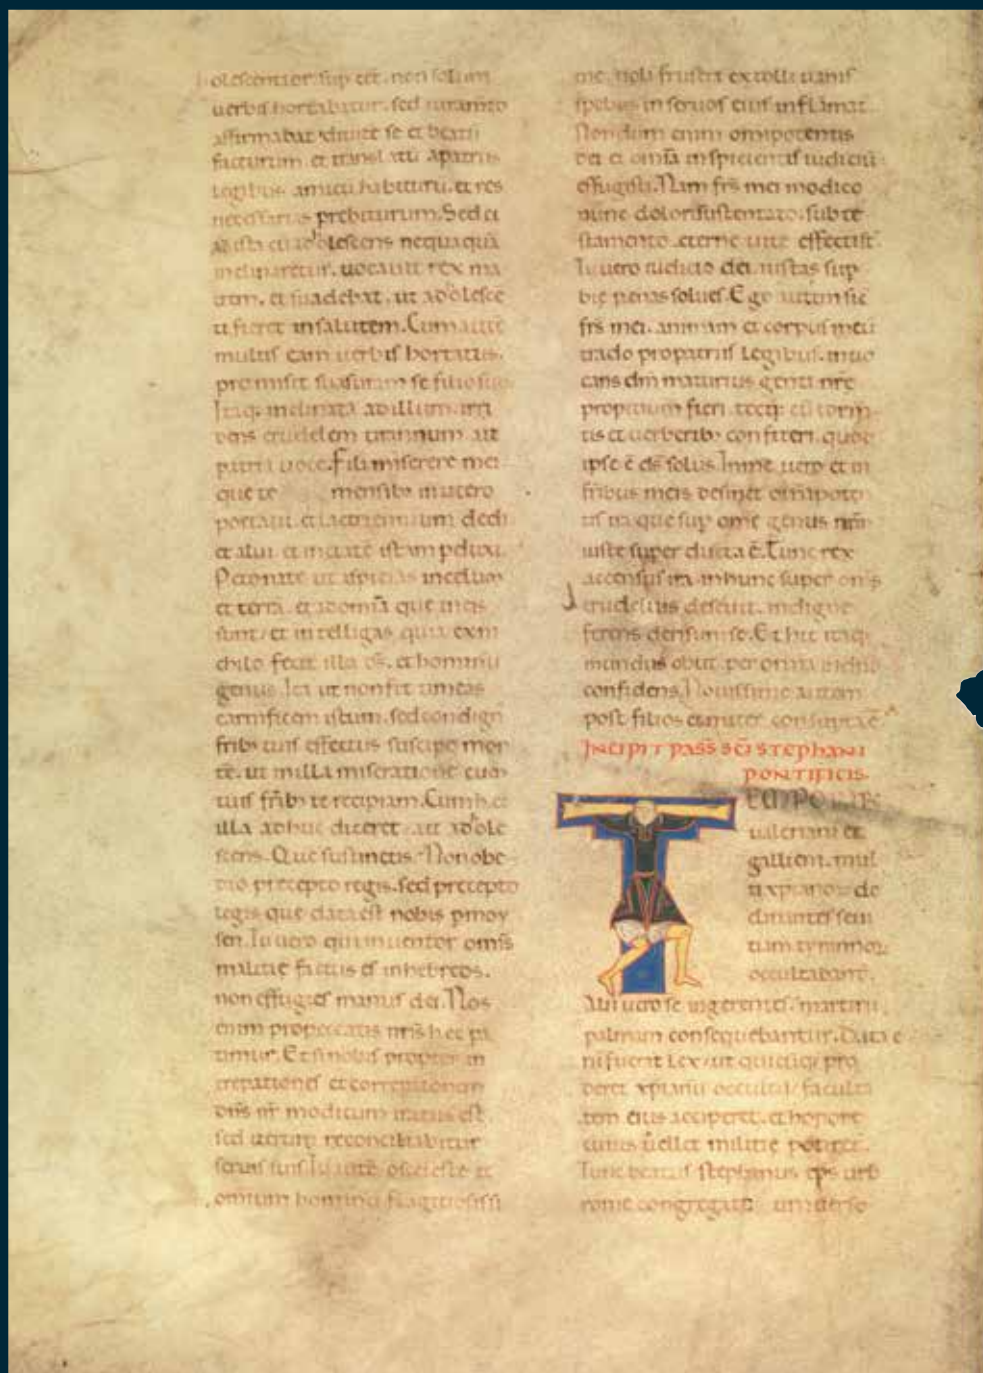 olescentior sup eēt. non solum
uerbis hortabatur. sed iuramto
affirmabat diuite se et beatū
facturum. et translatū apatriis
legibus amicū habiturū. et res
necessarias prebiturum. Sed
adolescens nequaquā
inclinaretur. uocauit rex ma
trem. et suadebat. ut adolesce
ti fieret insalutem. Cum autē
multis eam uerbis hortatus.
promisit suasuram se filio suo
Itaq; inclinata adillum. irri
dens crudelem tirannum. ait
patria uoce. Fili miserere mei
que te mensib; inutero
portaui. et lac triennium dedi
et alui. et inetatē istam pduxi.
Peto nate ut aspicias incelum
et terrā. et adomīa que ineis
sunt. et intelligas quia exni
chilo fecit illa ds. et hominū
genus. Ita ut non fit timeas
carnificem istum. sed condign
frib; tuis effectus suscipe mor
tē. ut inilla miseratione cum
tuis frib; te recipiam. Cum hec
illa adhuc diceret. ait adole
scens. Que sustinetis. Nonobe
dio precepto regis. sed precepto
legis que data est nobis pmoy
sen. Tu uero qui inuentor omīs
malitie factus es inhebreos.
non effugies manus dei. Nos
enim propeccatis nris hec pa
timur. Et si nobis propter in
crepationes et correptionem
dns nr modicum iratus est.
sed iterum reconciliabitur
seruis suis. Tu autē o sceleste et
omnium hominū flagitiosissi
me. noli frustra extolli uanis
spebus in seruos eius inflāmat
Nondum enim omipotentis
dei et omīa inspicientis iudiciū
effugisti. Nam frs mei modico
nunc dolore sustentato. sub te
stamento eterne uite effectist.
Tu uero iudicio dei. iustas sup
bie penas solues. Ego autem sic
frs mei. animam et corpus meū
trado propatriis legibus. inuo
cans dm maturius genti nre
propitium fieri. teq; cū torm
tis et uerberib; confiteri. quod
ipse ē ds solus. Inme uero et in
fribus meis desinet omīpote
tis ira que sup ome genus nrm
iuste super ducta ē. Tunc rex
accensus ira. inhunc super oms
crudelius deseuit. indigne
ferens derisum se. Et hic itaq;
mundus obiit. per omīa indno
confidens. Nouissime autem
post filios et mater consumta ē
INCIPIT PASS̄ SC̄I STEPHANI
PONTIFICIS.
TEMPORIB;
ualeriani et
gallieni. mul
ti xpianor; de
clinantes seui
tiam tyrannor;
occultabant.
Alii uero se ingerentes. martirii
palmam consequebantur. Data e
ni fuerat lex. ut quicūq; pro
deret xpianū occultū. faculta
tem eius acciperet. et honore
cuius uellet militie potiret.
Tunc beatus stephanus eps urb
rome congregatis uniuerso